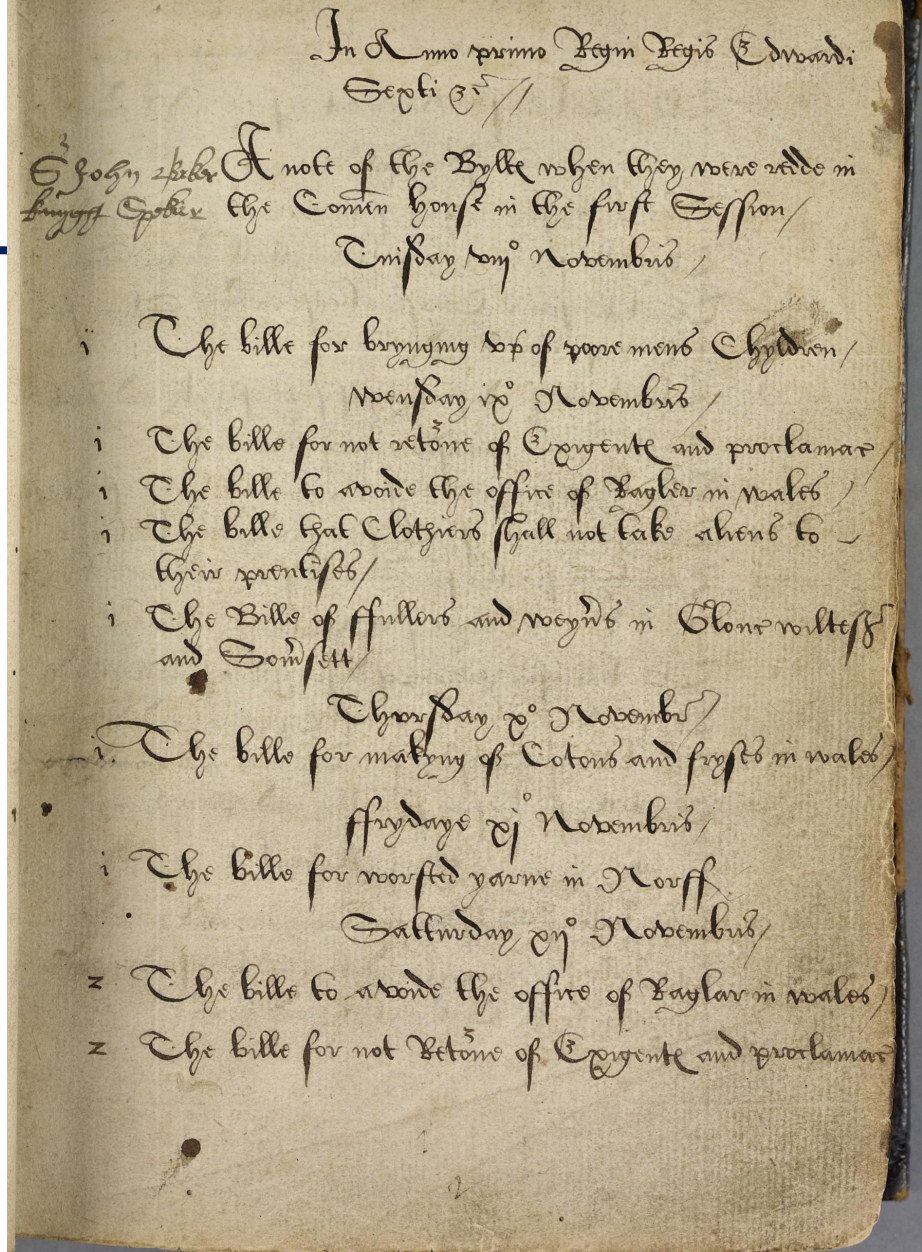 In Anno primo Regni Regis Edwardi
Sexti &c̃ //
Sr John Baker
knyght Speker
A note of the Bylles when they were redde in
the Comen house in the first Session /
Tuisday viijº Novembris /
i The bille for brynging up of poore mens Chyldren /
wensday ixº Novembris /
i The bille for not retorne of Exigentes and proclamac /
i The bille to avoide the office of Bagler in wales /
i The bille that Clothiers shall not take aliens to
their prentises /
i The Bille of ffullers and wevers in Glouc wiltesh
and Somsett /
Thursday xº Novembr /
i The bille for makyng of Cotons and fryses in wales /
ffrydaye xjº Novembris /
i The bille for worsted yarne in Norff
Satturday xijº Novembris /
2 The bille to avoide the office of Baglar in wales /
2 The bille for not Retorne of Exigentes and proclamac